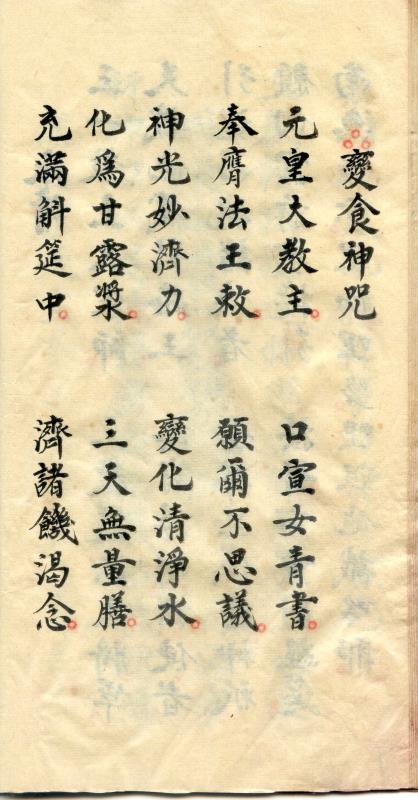 變食神咒
元皇大教主 口宣女青書
奉膺法王敕 願爾不思議
神光妙濟力 變化清淨水
化爲甘露漿 三天無量膳
充滿斛筵中 濟諸饑渴念